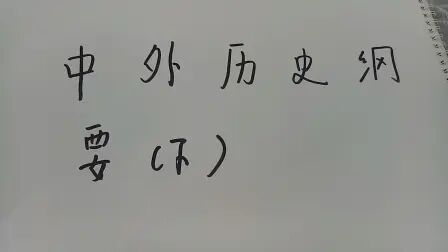 中外历史纲
要(下)